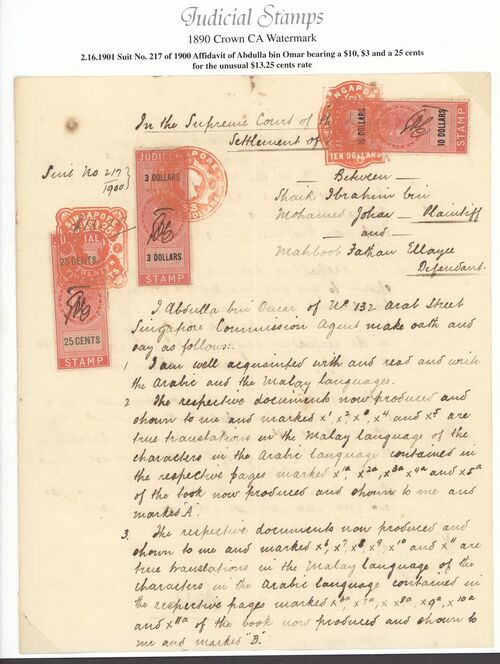 Judicial Stamps
1890 Crown CA Watermark
2.16.1901 Suit No. 217 of 1900 Affidavit of Abdulla bin Omar bearing a $10, $3 and a 25 cents
for the unusual $13.25 cents rate
In the Supreme Court of the
Settlement of
SINGAPORE
TEN DOLLARS
10 DOLLARS
10 DOLLARS
STAMP
Suit No 217
1900
JUDICIAL
3 DOLLARS
3 DOLLARS
STAMP
SINGAPORE
SINGAPORE
25 CENTS
25 CENTS
STAMP
Between
Shaik Ibrahim bin
Mohamed Johar — Plaintiff
— and —
Mahboob Fathan Ellaya
Defendant.
I Abdulla bin Omar of No 132 Arab Street
Singapore Commission Agent make oath and
say as follows:
1 I am well acquainted with and read and write
the Arabic and the Malay languages.
2 The respective documents now produced and
shown to me and marked x1, x2, x3, x4 and x5 are
true translations in the Malay language of the
characters in the Arabic language contained in
the respective pages marked x1a, x2a, x3a x4a and x5a
of the book now produced and shown to me and
marked "A".
3. The respective documents now produced and
shown to me and marked x6, x7, x8, x9, x10 and x11 are
true translations in the Malay language of the
characters in the Arabic language contained in
the respective pages marked x6a, x7a, x x8a, x9a, x10a
and x11a of the book now produced and shown to
me and marked "B".